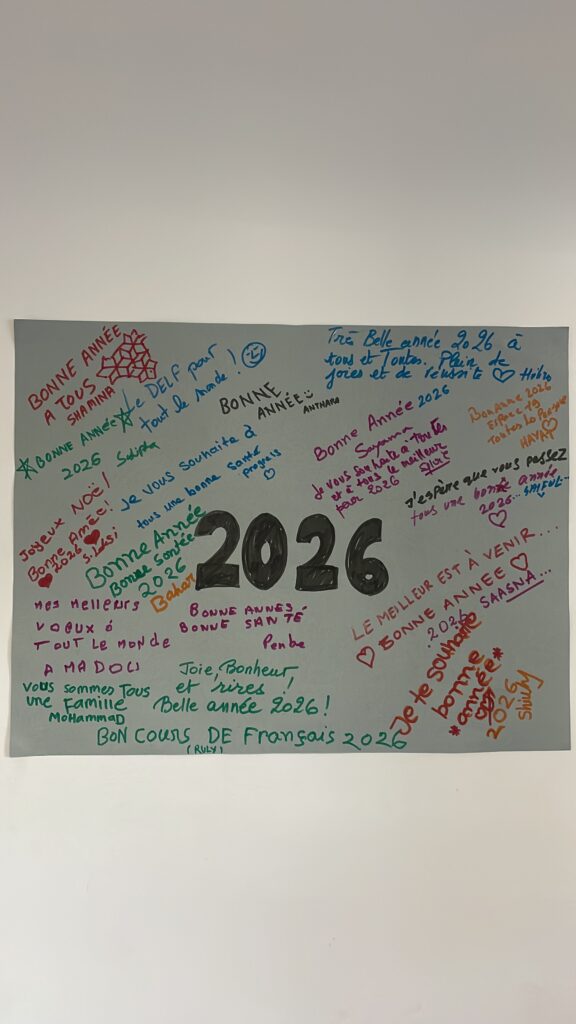 BONNE ANNÉE
A TOUS
SHAMINA
Le DELF pour
tout le monde !
BONNE
ANNÉE
ANTHARA
Très Belle année 2026 à
tous et Toutes. Plein de
joies et de réussite
BONNE ANNÉE
2026
Bonne Année 2026
Suganna
Je vous souhaite à toutes
et à tous le meilleur
pour 2026
Sylvie
Bon Anne 2026
Espace 19
Toutes Le
HAYAT
Je vous souhaite à
tous une bonne santé
progrès
j'espère que vous passez
tous une bonne année
2026...
SAIFUL
Joyeux NOËL!
Bonne Année!
2026
Bonne Année
Bonne Santée
2026
Bahar
2026
mes meilleurs
voeux à
TOUT LE MONDE
AMADOU
BONNE ANNES
BONNE SANTÉ
Penbe
LE MEILLEUR EST À VENIR...
BONNE ANNEE
2026 SAASNA...
Je te souhaite
bonne
*année*
2026
ShiuLY
Joie, Bonheur
et rires !
Belle année 2026!
vous sommes Tous
une Famille
MOHAMMAD
BON COURS DE Français 2026
(RULY)